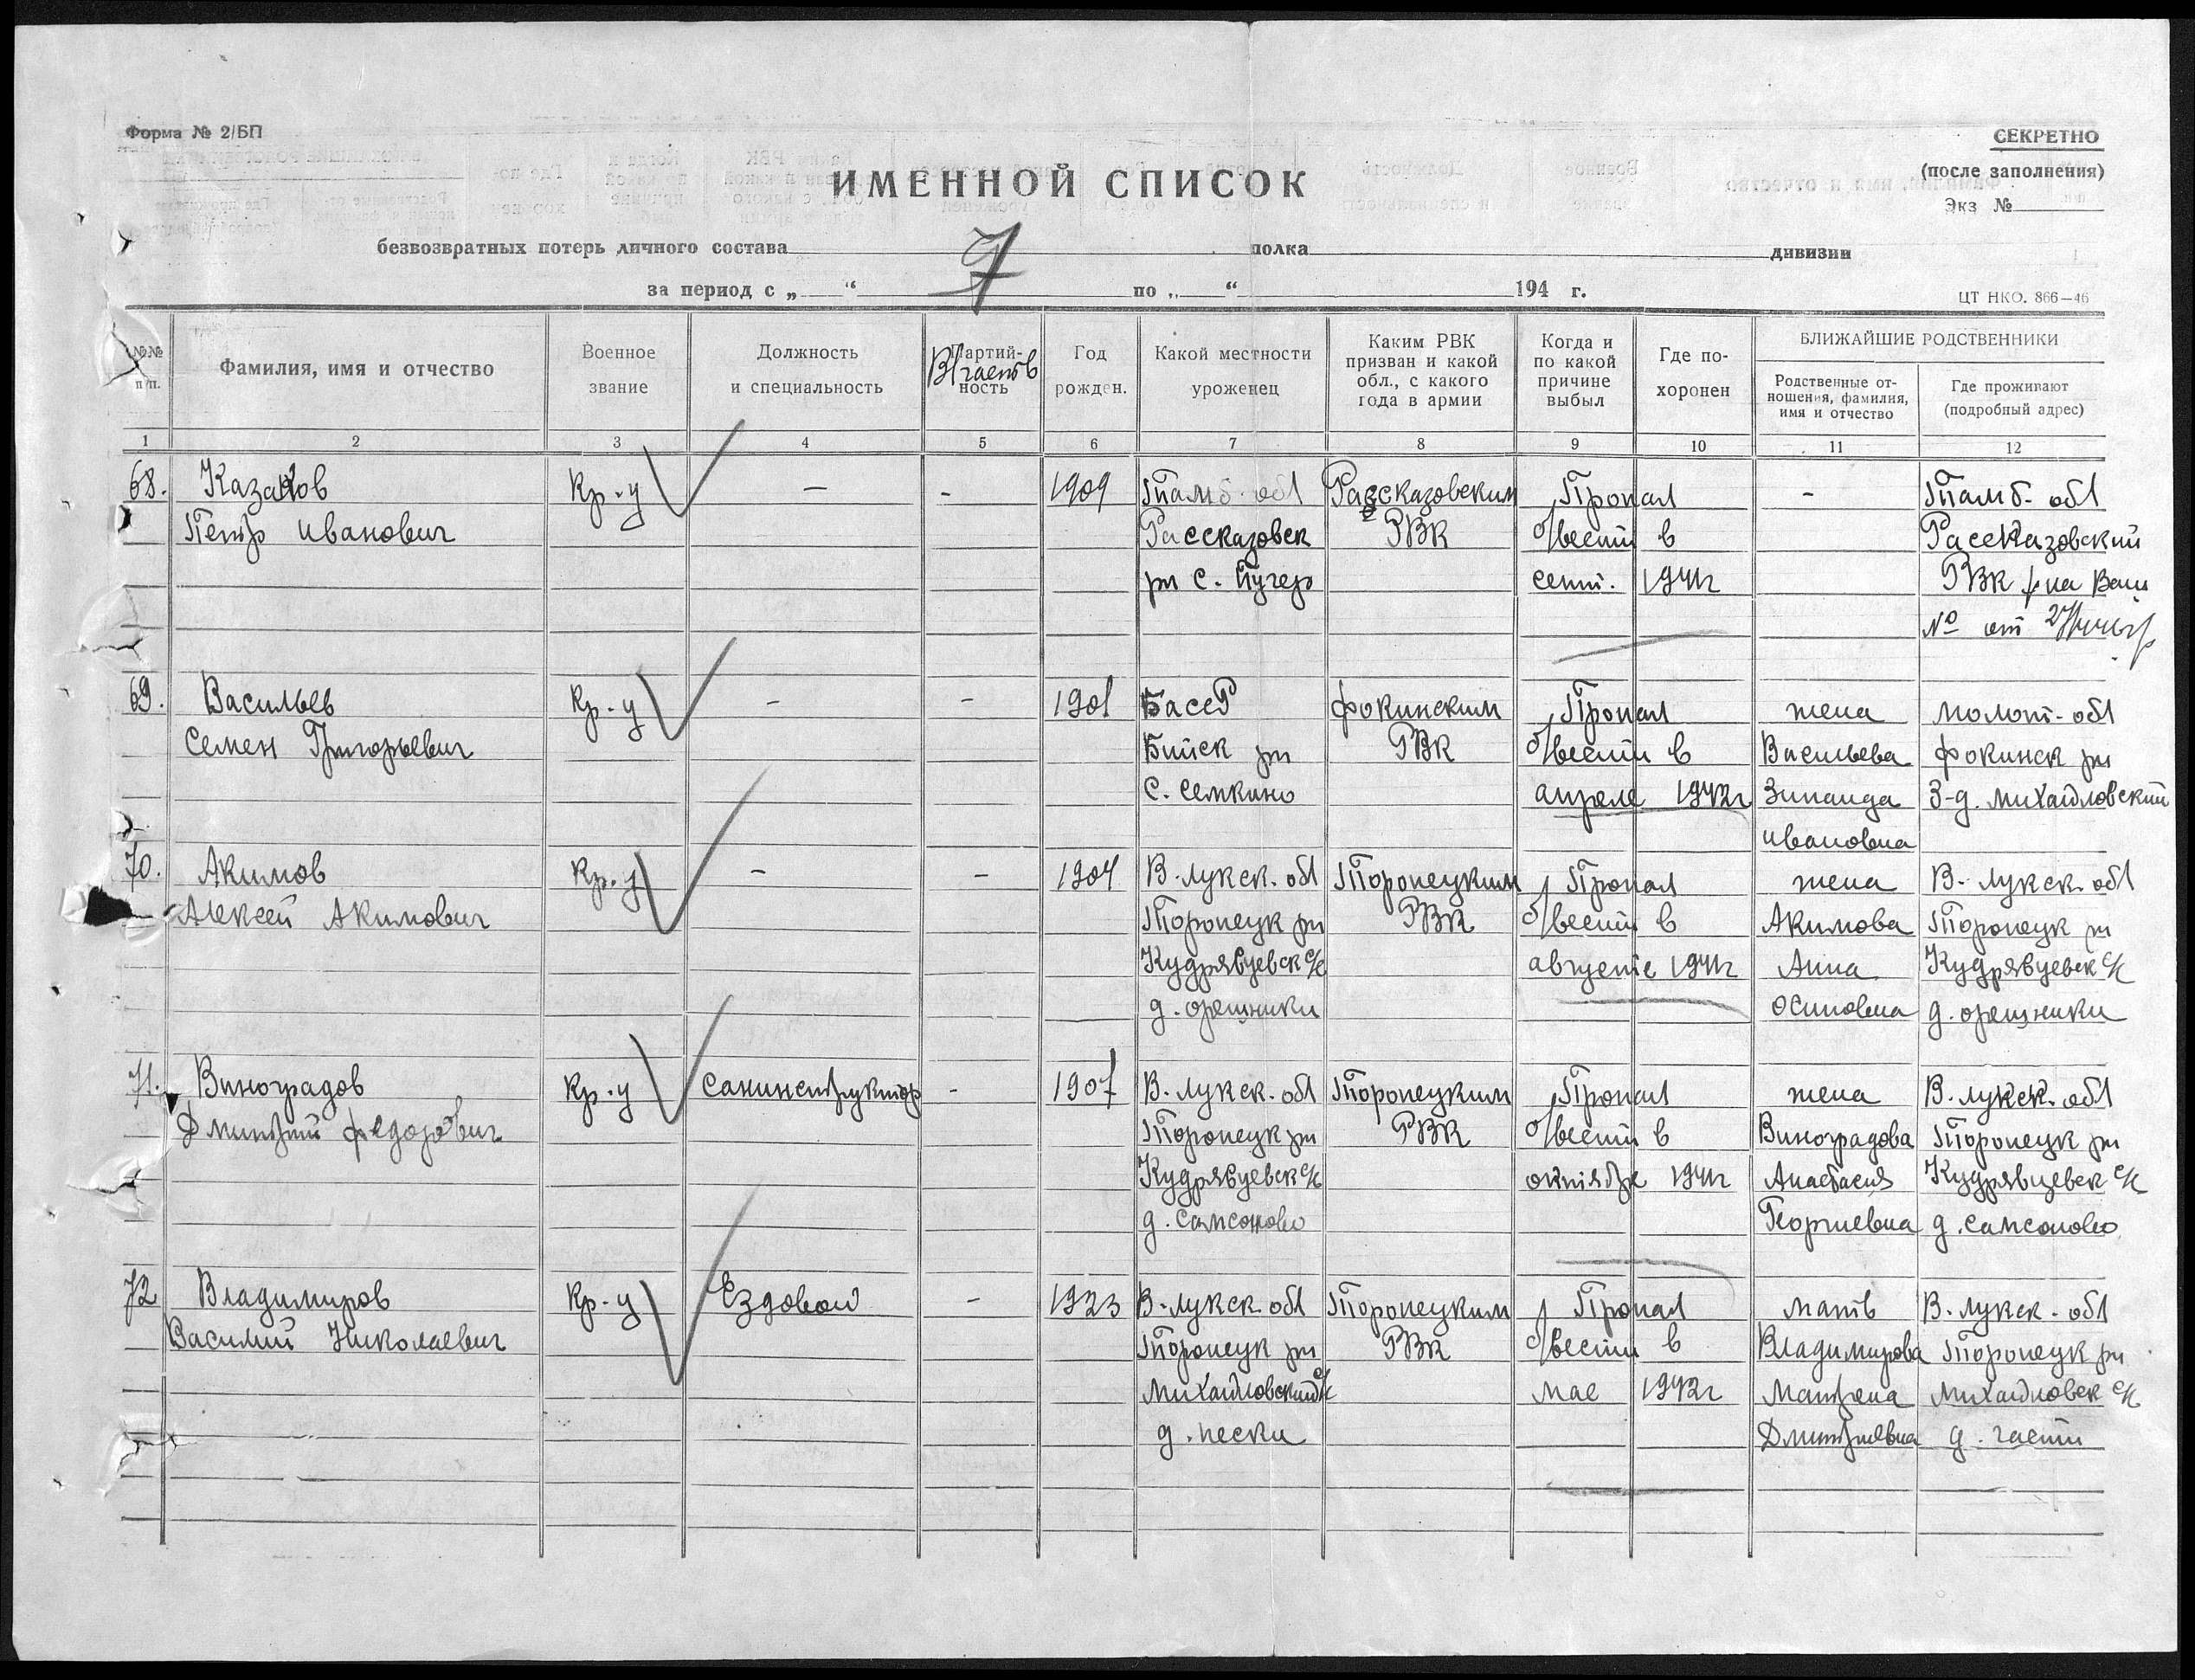 Форма № 2/БП
СЕКРЕТНО
(после заполнения)
Экз №
ИМЕННОЙ СПИСОК
безвозвратных потерь личного состава полка дивизии
7
за период с „ “ по „ “ 194 г.
ЦТ НКО. 866—46
№№ п/п.
Фамилия, имя и отчество
Военное звание
Должность и специальность
Партийность
В/часть
Год рожден.
Какой местности уроженец
Каким РВК призван и какой обл., с какого года в армии
Когда и по какой причине выбыл
Где похоронен
БЛИЖАЙШИЕ РОДСТВЕННИКИ
Родственные отношения, фамилия, имя и отчество
Где проживают (подробный адрес)
1 2 3 4 5 6 7 8 9 10 11 12
68. Казаков Кр-ц — - 1909 Тамб. обл Рассказовским Пропал - Тамб. обл
Петр Иванович Рассказовск РВК б/вести в Рассказовский
рн с. сент. 1941г РВК на
№ от
69. Васильев Кр-ц - - 1901 БАССР Фокинским Пропал жена Молот. обл
Семен Григорьевич Бийск рн РВК б/вести в Васильева Фокинск рн
с. Семкино апреле 1942г Зинаида З-д. Михайловский
Ивановна
70. Акимов Кр-ц - - 1904 В. Лукск. обл Торопецким Пропал жена В. Лукск. обл
Алексей Акимович Торопецк рн РВК б/вести в Акимова Торопецк рн
Кудрявцевск с/с августе 1941г Анна Кудрявцевск с/с
д. Орешники Осиповна д. Орешники
71. Виноградов Кр-ц Санинструктор - 1907 В. Лукск. обл Торопецким Пропал жена В. Лукск. обл
Дмитрий Федорович Торопецк рн РВК б/вести в Виноградова Торопецк рн
Кудрявцевск с/с октябре 1941г Анастасия Кудрявцевск с/с
д. Самсоново Георгиевна д. Самсоново
72 Владимиров Кр-ц Ездовой - 1923 В. Лукск обл Торопецким Пропал мать В. Лукск. обл
Василий Николаевич Торопецк рн РВК б/вести в Владимирова Торопецк рн
Михайловский с/с мае 1942г Матрена Михайловск с/с
д. Пески Дмитриевна д.